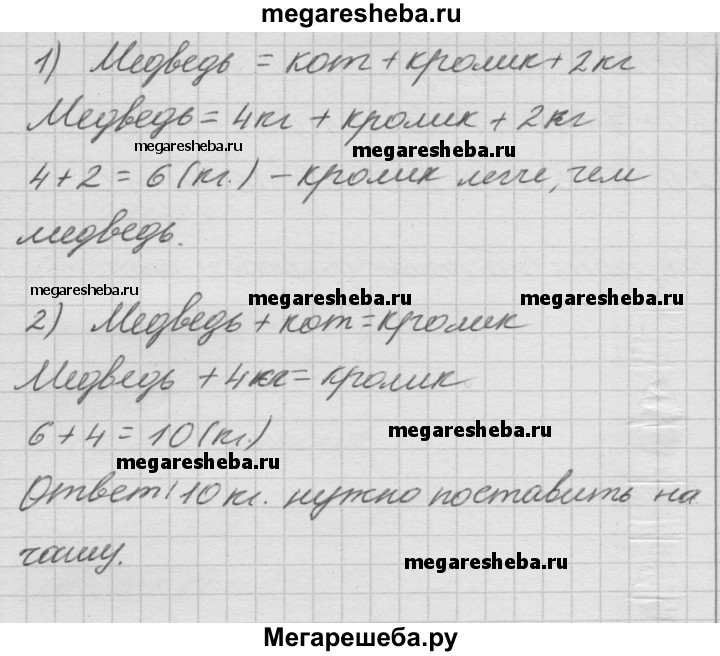 megaresheba.ru
1) Медведь = кот + кролик + 2 кг
Медведь = 4 кг + кролик + 2 кг
megaresheba.ru
megaresheba.ru
4 + 2 = 6 (кг.) – кролик легче, чем
медведь.
megaresheba.ru
megaresheba.ru
megaresheba.ru
2) Медведь + кот = кролик
Медведь + 4 кг = кролик
6 + 4 = 10 (кг.)
megaresheba.ru
megaresheba.ru
Ответ: 10 кг. нужно поставить на
чашу.
megaresheba.ru
Мегарешеба.ру